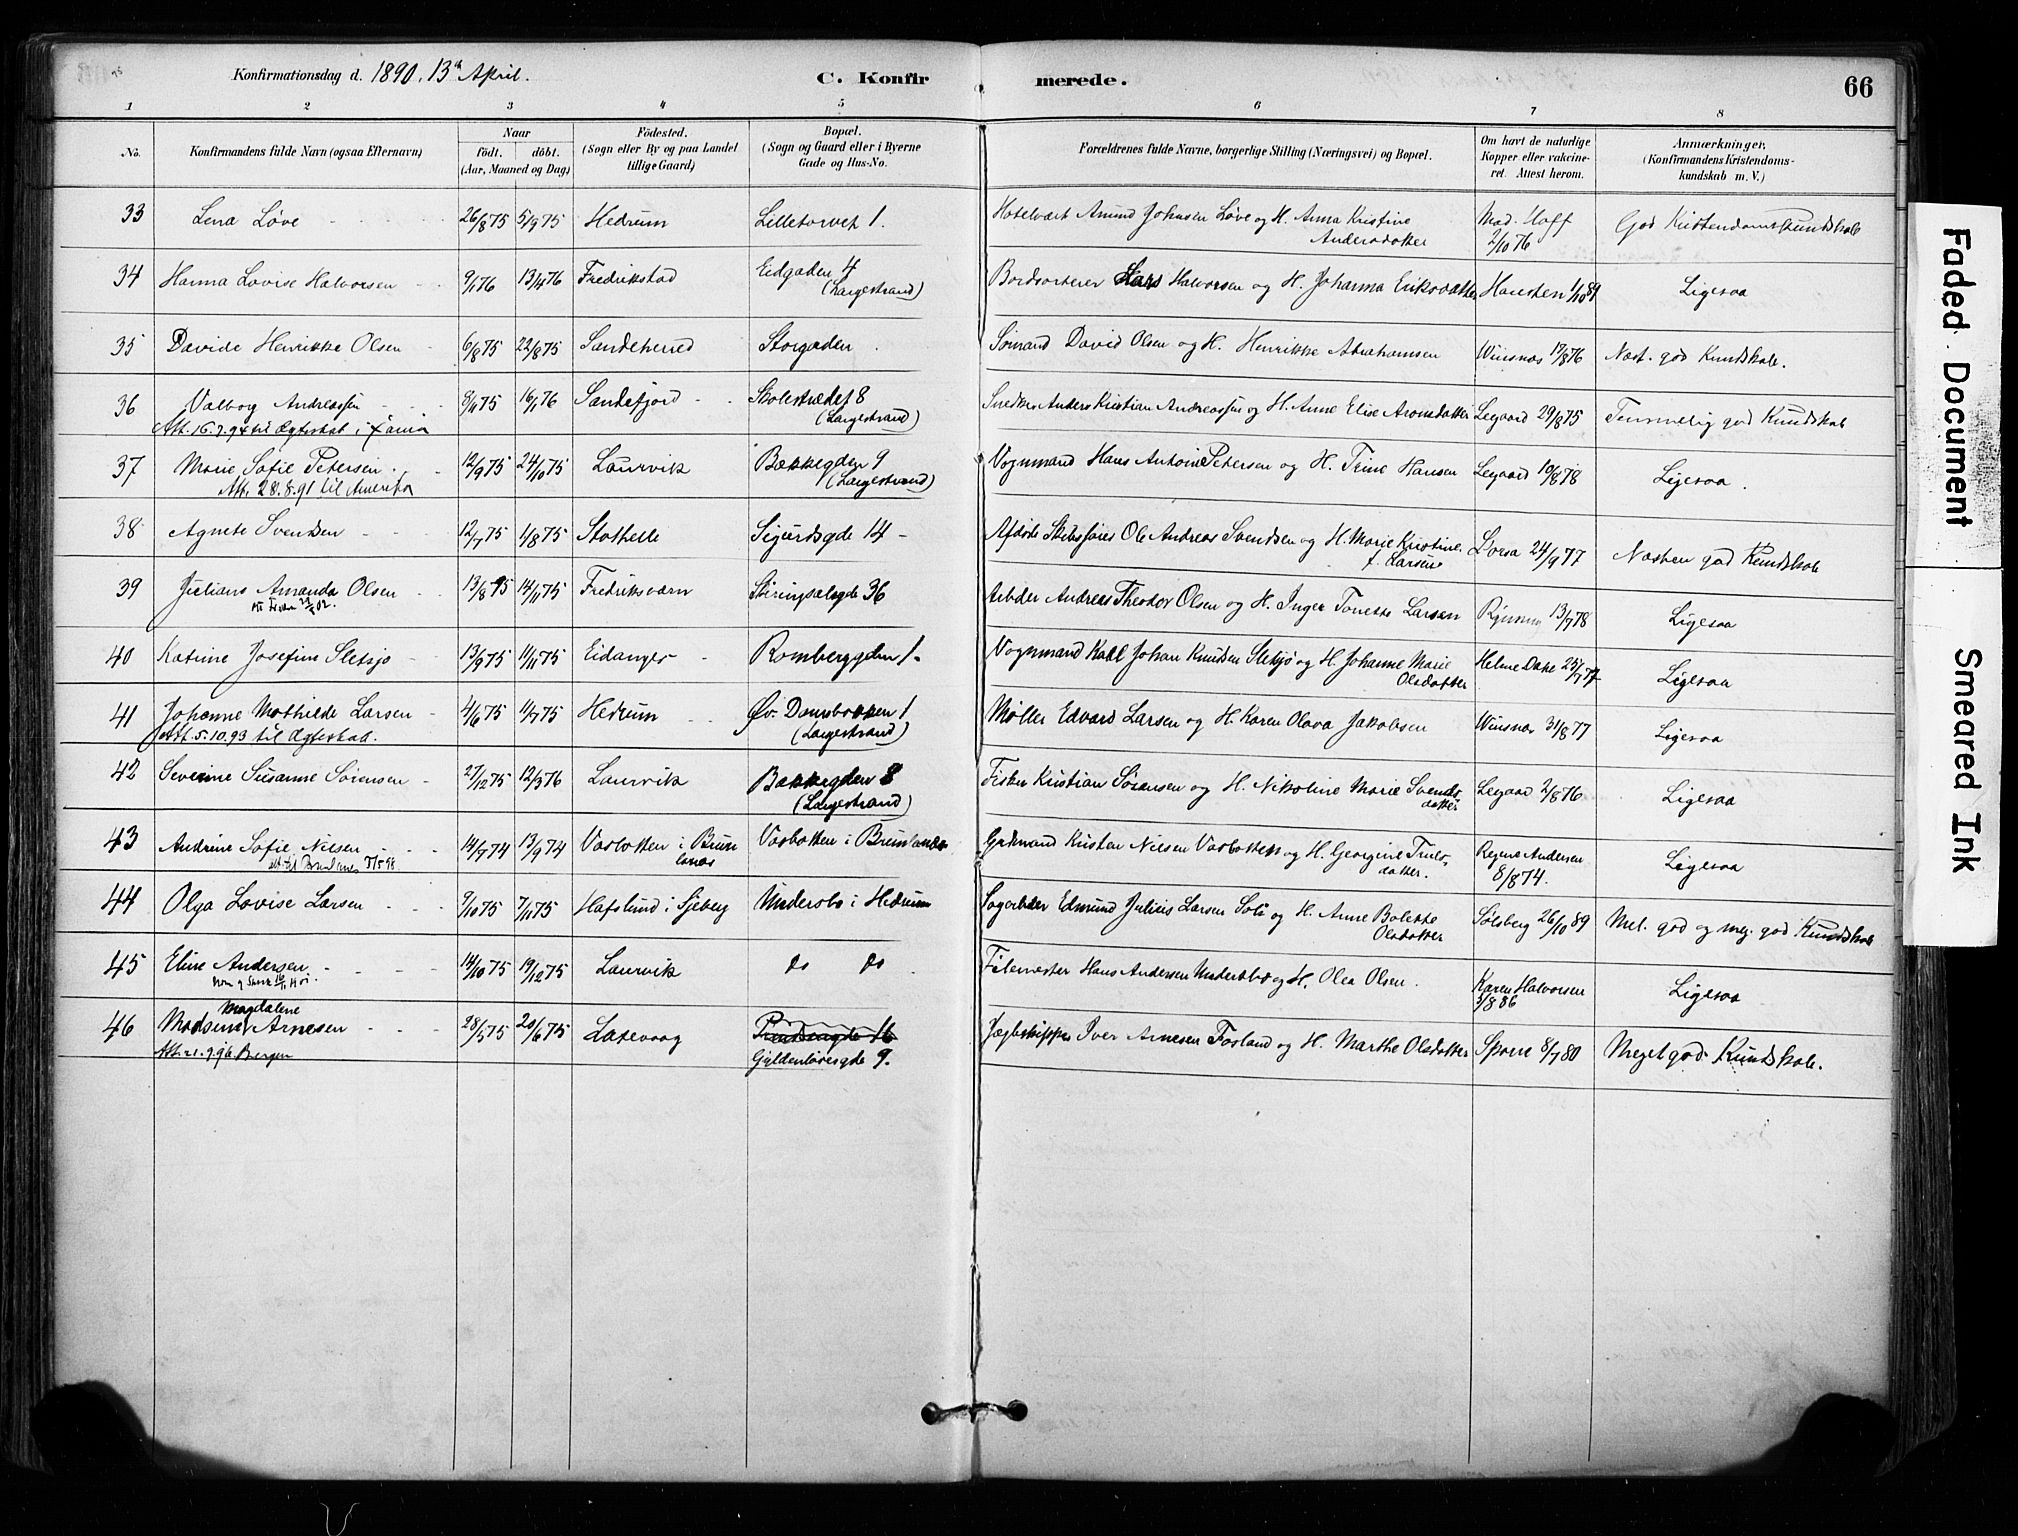 Konfirmationsdag d. 1890. 13de April. C. Konfirmerede. 66
1 2 3 4 5 6 7 8
No. Konfirmandens fulde Navn (ogsaa Efternavn) Naar födt. döbt. (Aar, Maaned og Dag) Födested. (Sogn eller By og paa Landet tillige Gaard) Bopæl. (Sogn og Gaard eller i Byerne Gade og Hus-No. Forældrenes fulde Navne, borgerlige Stilling (Næringsvei) og Bopæl. Om havt de naturlige Kopper eller vaccineret. Attest herom. Anmærkninger. (Konfirmandens Kristendomskundskab m. V.)
33 Lena Løve 26/8 75 5/9 75 Hedrum Lilletorvet 1. Hotelvært Amund Johnsen Løve og H. Anna Kristine Andersdatter Mad. Hoff 2/10 76 God Kristendomskundskab
34 Hanna Lovise Halvorsen 9/1 76 13/4 76 Fredrikstad Eidgaden 4 (Langestrand) Bordsorterer Lars Halvorsen og H. Johanna Eriksdatter Hansten 1/10 89 Ligesaa
35 Davide Henrikke Olsen 6/8 75 22/8 75 Sandeherred Storgaden Sømand David Olsen og H. Henrikke Abrahamsen Winsnes 17/8 76 Næst. god Kundskab.
36 Valborg Andreassen 8/11 75 16/1 76 Sandefjord Skolestrædet 8 (Langestrand) Snedker Anders Kristian Andreassen og H. Anne Elise Aronsdatter Legaard 29/8 75 Temmelig god Kundskab
Att. 16.7.94 til Ægteskab i Xania
37 Marie Sofie Petersen 12/9 75 24/10 75 Laurvik Bækkegden 9 (Langestrand) Vognmand Hans Antoine Petersen og H. Trine Hansen Legaard 10/8 78 Ligesaa.
Att. 28.8.91 til Amerika
38 Agnete Svendsen 12/7 75 1/8 75 Stathelle Sigurdsgde 14 Afdøde Skibsfører Ole Andreas Svendsen og H. Marie Kristine f. Larsen Lorsa 24/9 77 Næsten god Kundskab
39 Juliane Amanda Olsen 13/8 75 14/11 75 Fredriksværn Skiringsalsgde 36 Arbeider Andreas Theodor Olsen og H. Inger Tonette Larsen 13/7 78 Ligesaa
40 Katrine Josefine Sletsjø 13/9 75 11/11 75 Eidanger Romberggden 1. Vognmand Karl Johan Knudsen Sletsjø og H. Johanne Marie Olsdatter Helene Dahl 25/7 77 Ligesaa
41 Johanne Mathilde Larsen 4/6 75 11/7 75 Hedrum Øv. Damsbakken 1 (Langestrand) Møller Edvard Larsen og H. Karen Olava Jakobsen Winsnes 31/8 77 Ligesaa
Att. 5.10.93 til Ægteskab.
42 Severine Susanne Sørensen 27/12 75 12/3 76 Laurvik Bækkegden 8 (Langestrand) Fisker Kristian Sørensen og H. Nikoline Marie Svendsdatter Legaard 2/8 76 Ligesaa
43 Andrine Sofie Nilsen 14/7 74 13/9 74 Vasbotten i Brunlanes Vasbotten i Brunlanes Grdmand Kristen Nilsen Vasbotten og H. Georgine Truelsdatter. Regine Andersen 8/8 74. Ligesaa
44 Olga Lovise Larsen 9/10 75 7/11 75 Hafslund i Sjeberg Undersbo i Hedrum Sagarbeider Edmund Julius Larsen Soli og H. Anne Bolette Olsdatter Solsberg 26/10 89 Mel. god og meg. god Kundskab
45 Elise Andersen 14/10 75 19/12 75 Laurvik do do Filemester Hans Andersen Undersbo og H. Olea Olsen. Karen Halvorsen 3/8 86 Ligesaa
46 Madsine Magdalene Arnesen 28/5 75 20/6 75 Laxevaag Gyldenløvesgde 9. Jægteskipper Iver Arnesen Fosland og H. Marthe Olsdatter Sporre 8/7 80 Meget god Kundskab.
Att. 21.9.96 Bergen
Faded Document
Smeared Ink